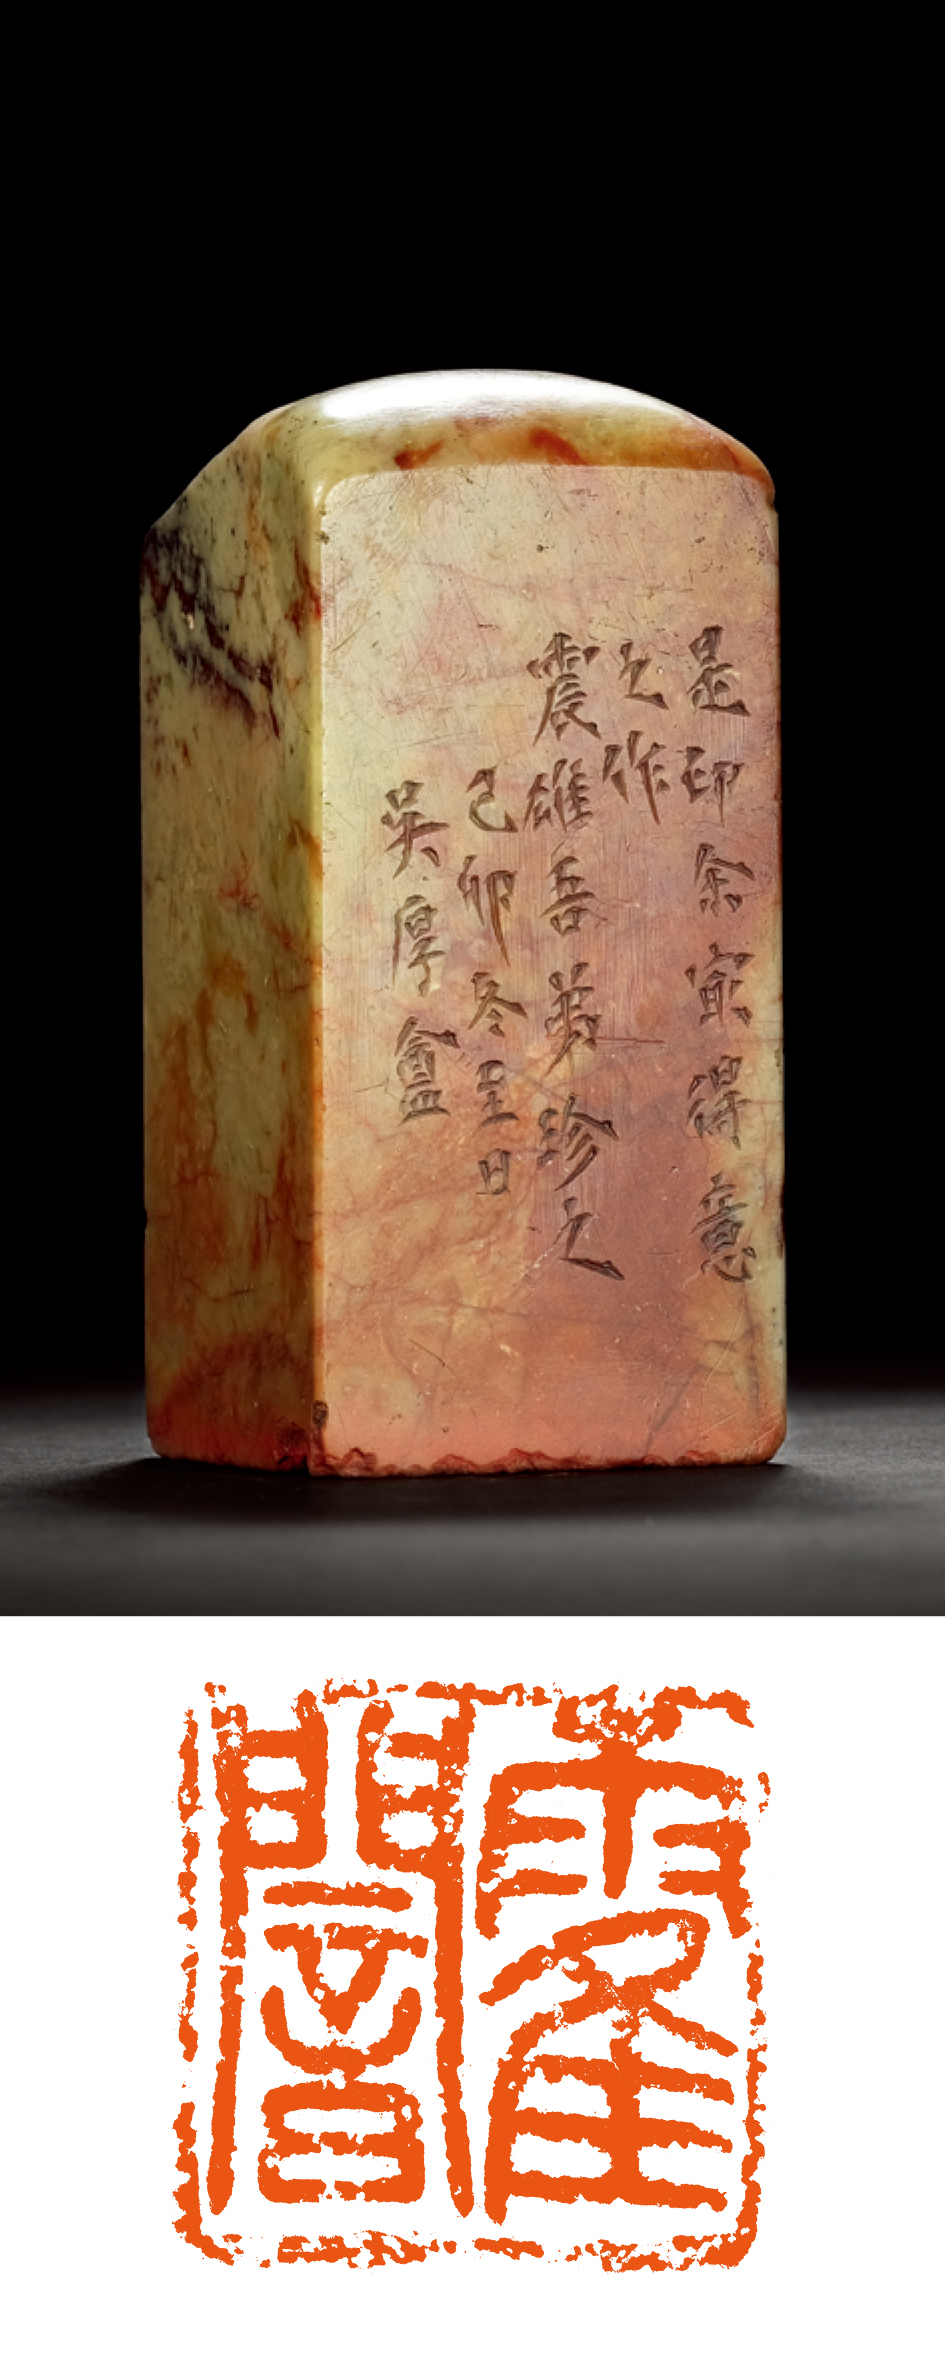 是印余㝡得意
之作
震雄吾弟珍之
己卯冬至日
吳厚盦
闇